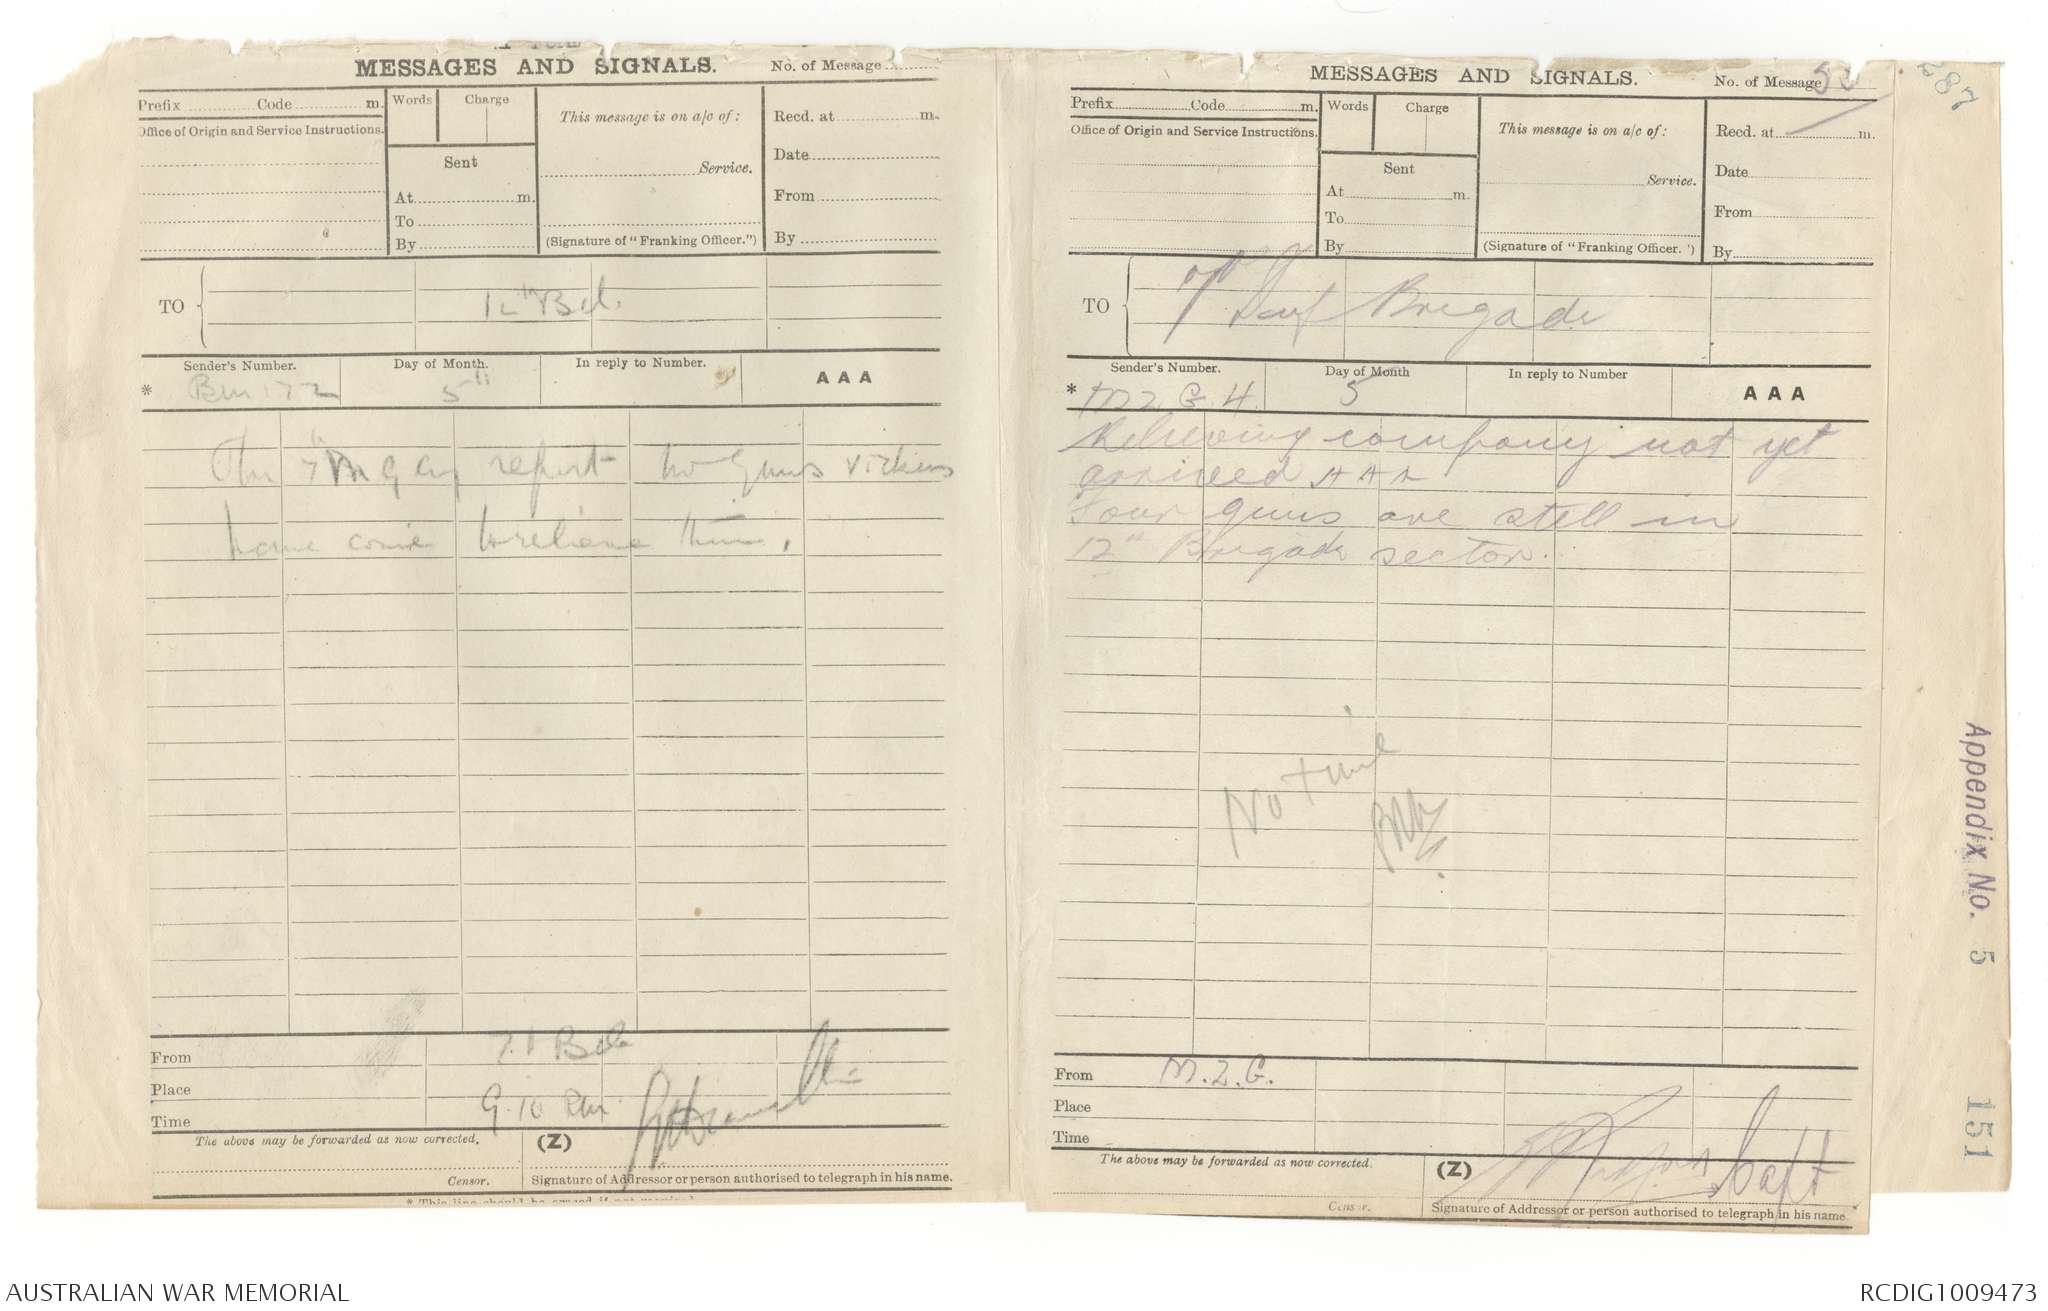 MESSAGES AND SIGNALS.
No. of Message
Prefix Code m.
Office of Origin and Service Instructions.
Words Charge
Sent
At m.
To
By
This message is on a/c of:
Service.
(Signature of "Franking Officer.")
Recd. at m.
Date
From
By
TO
12th Bde.
Sender's Number.
Day of Month.
In reply to Number.
AAA
* BM 172
5th
The 7th M G Coy report no guns vickers
have come to relieve them.
From
Place
Time
7th Bde
9.10 Pm.
The above may be forwarded as now corrected.
(Z)
Censor.
Signature of Addressor or person authorised to telegraph in his name.
* This line should be erased if not required.
MESSAGES AND SIGNALS.
No. of Message
287
Prefix Code m.
Office of Origin and Service Instructions.
Words Charge
Sent
At m.
To
By
This message is on a/c of:
Service.
(Signature of "Franking Officer.")
Recd. at m.
Date
From
By
TO
7th Inf Brigade
Sender's Number.
Day of Month
In reply to Number
AAA
* MZG.4.
5
Relieving company not yet
arrived AAA
Four guns are still in
12th Brigade sector.
No time
From
Place
Time
M.Z.G.
Capt
The above may be forwarded as now corrected.
(Z)
Censor.
Signature of Addressor or person authorised to telegraph in his name
Appendix No. 5
151
AUSTRALIAN WAR MEMORIAL
RCDIG1009473